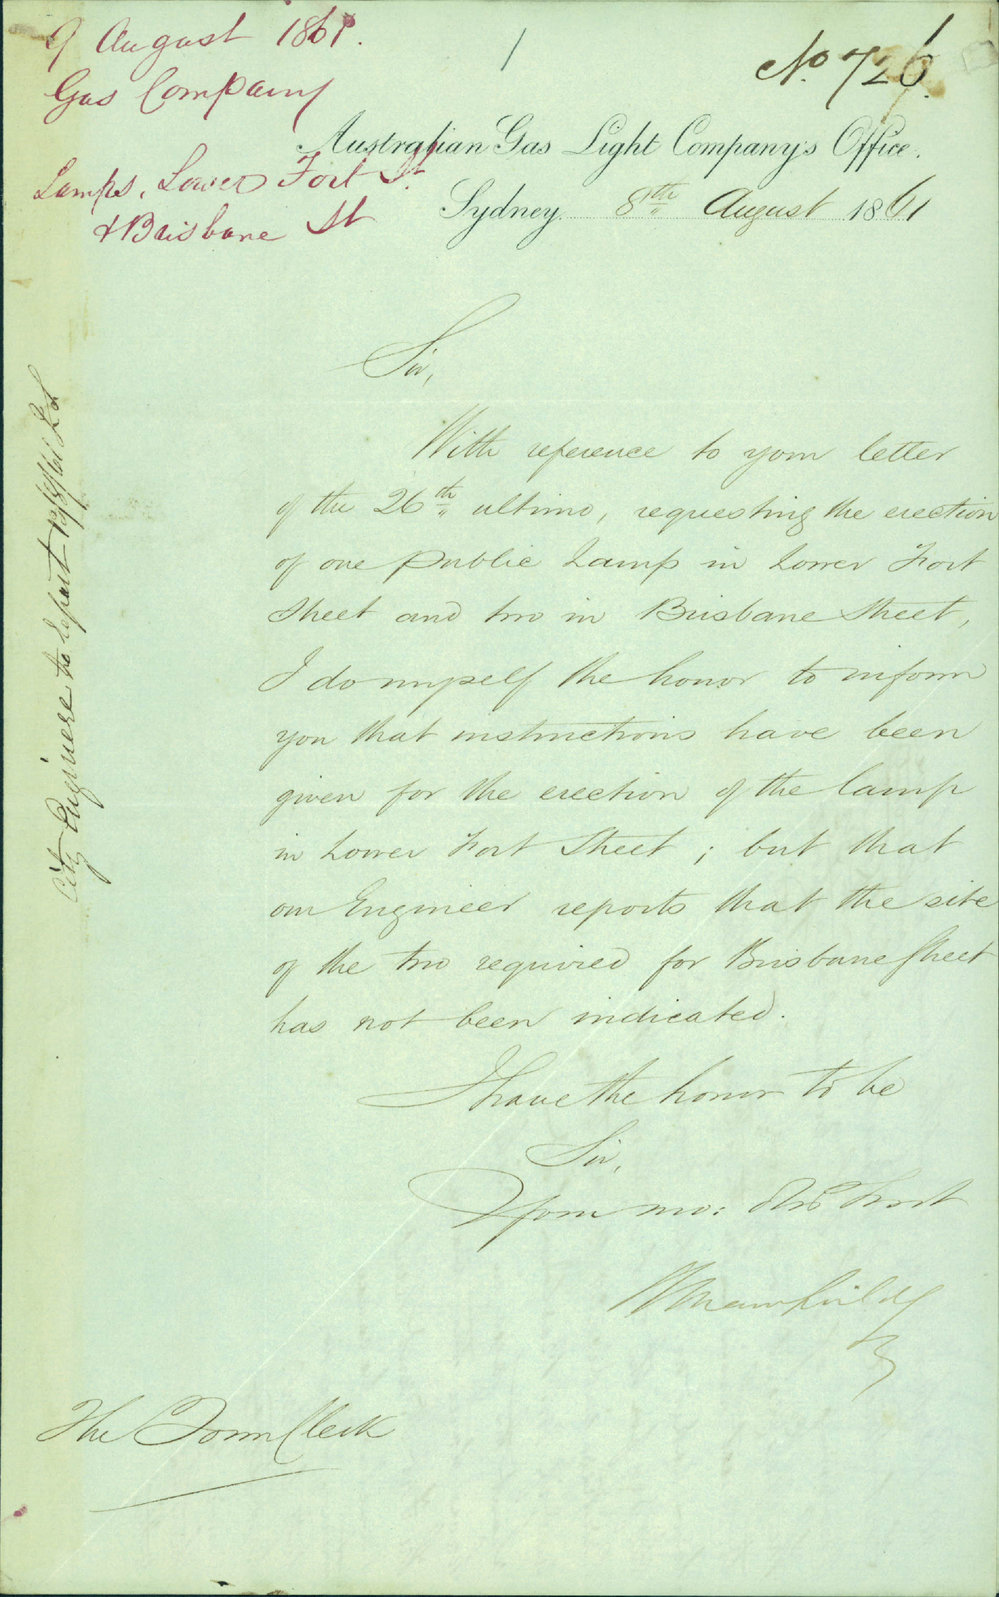 9 August 1861.
Gas Company
Lamps, Lower Fort St
& Brisbane St
1
No. 726.
Australian Gas Light Company's Office.
Sydney. 8th August 1861
Sir,
With reference to your letter
of the 26th ultimo, requesting the erection
of one Public Lamp in Lower Fort
Street and two in Brisbane Street,
I do myself the honor to inform
you that instructions have been
given for the erection of the lamp
in Lower Fort Street; but that
our Engineer reports that the site
of the two required for Brisbane Street
has not been indicated.
I have the honor to be
Sir,
Your mo: Obt Servt
The Town Clerk
City Engineer to report